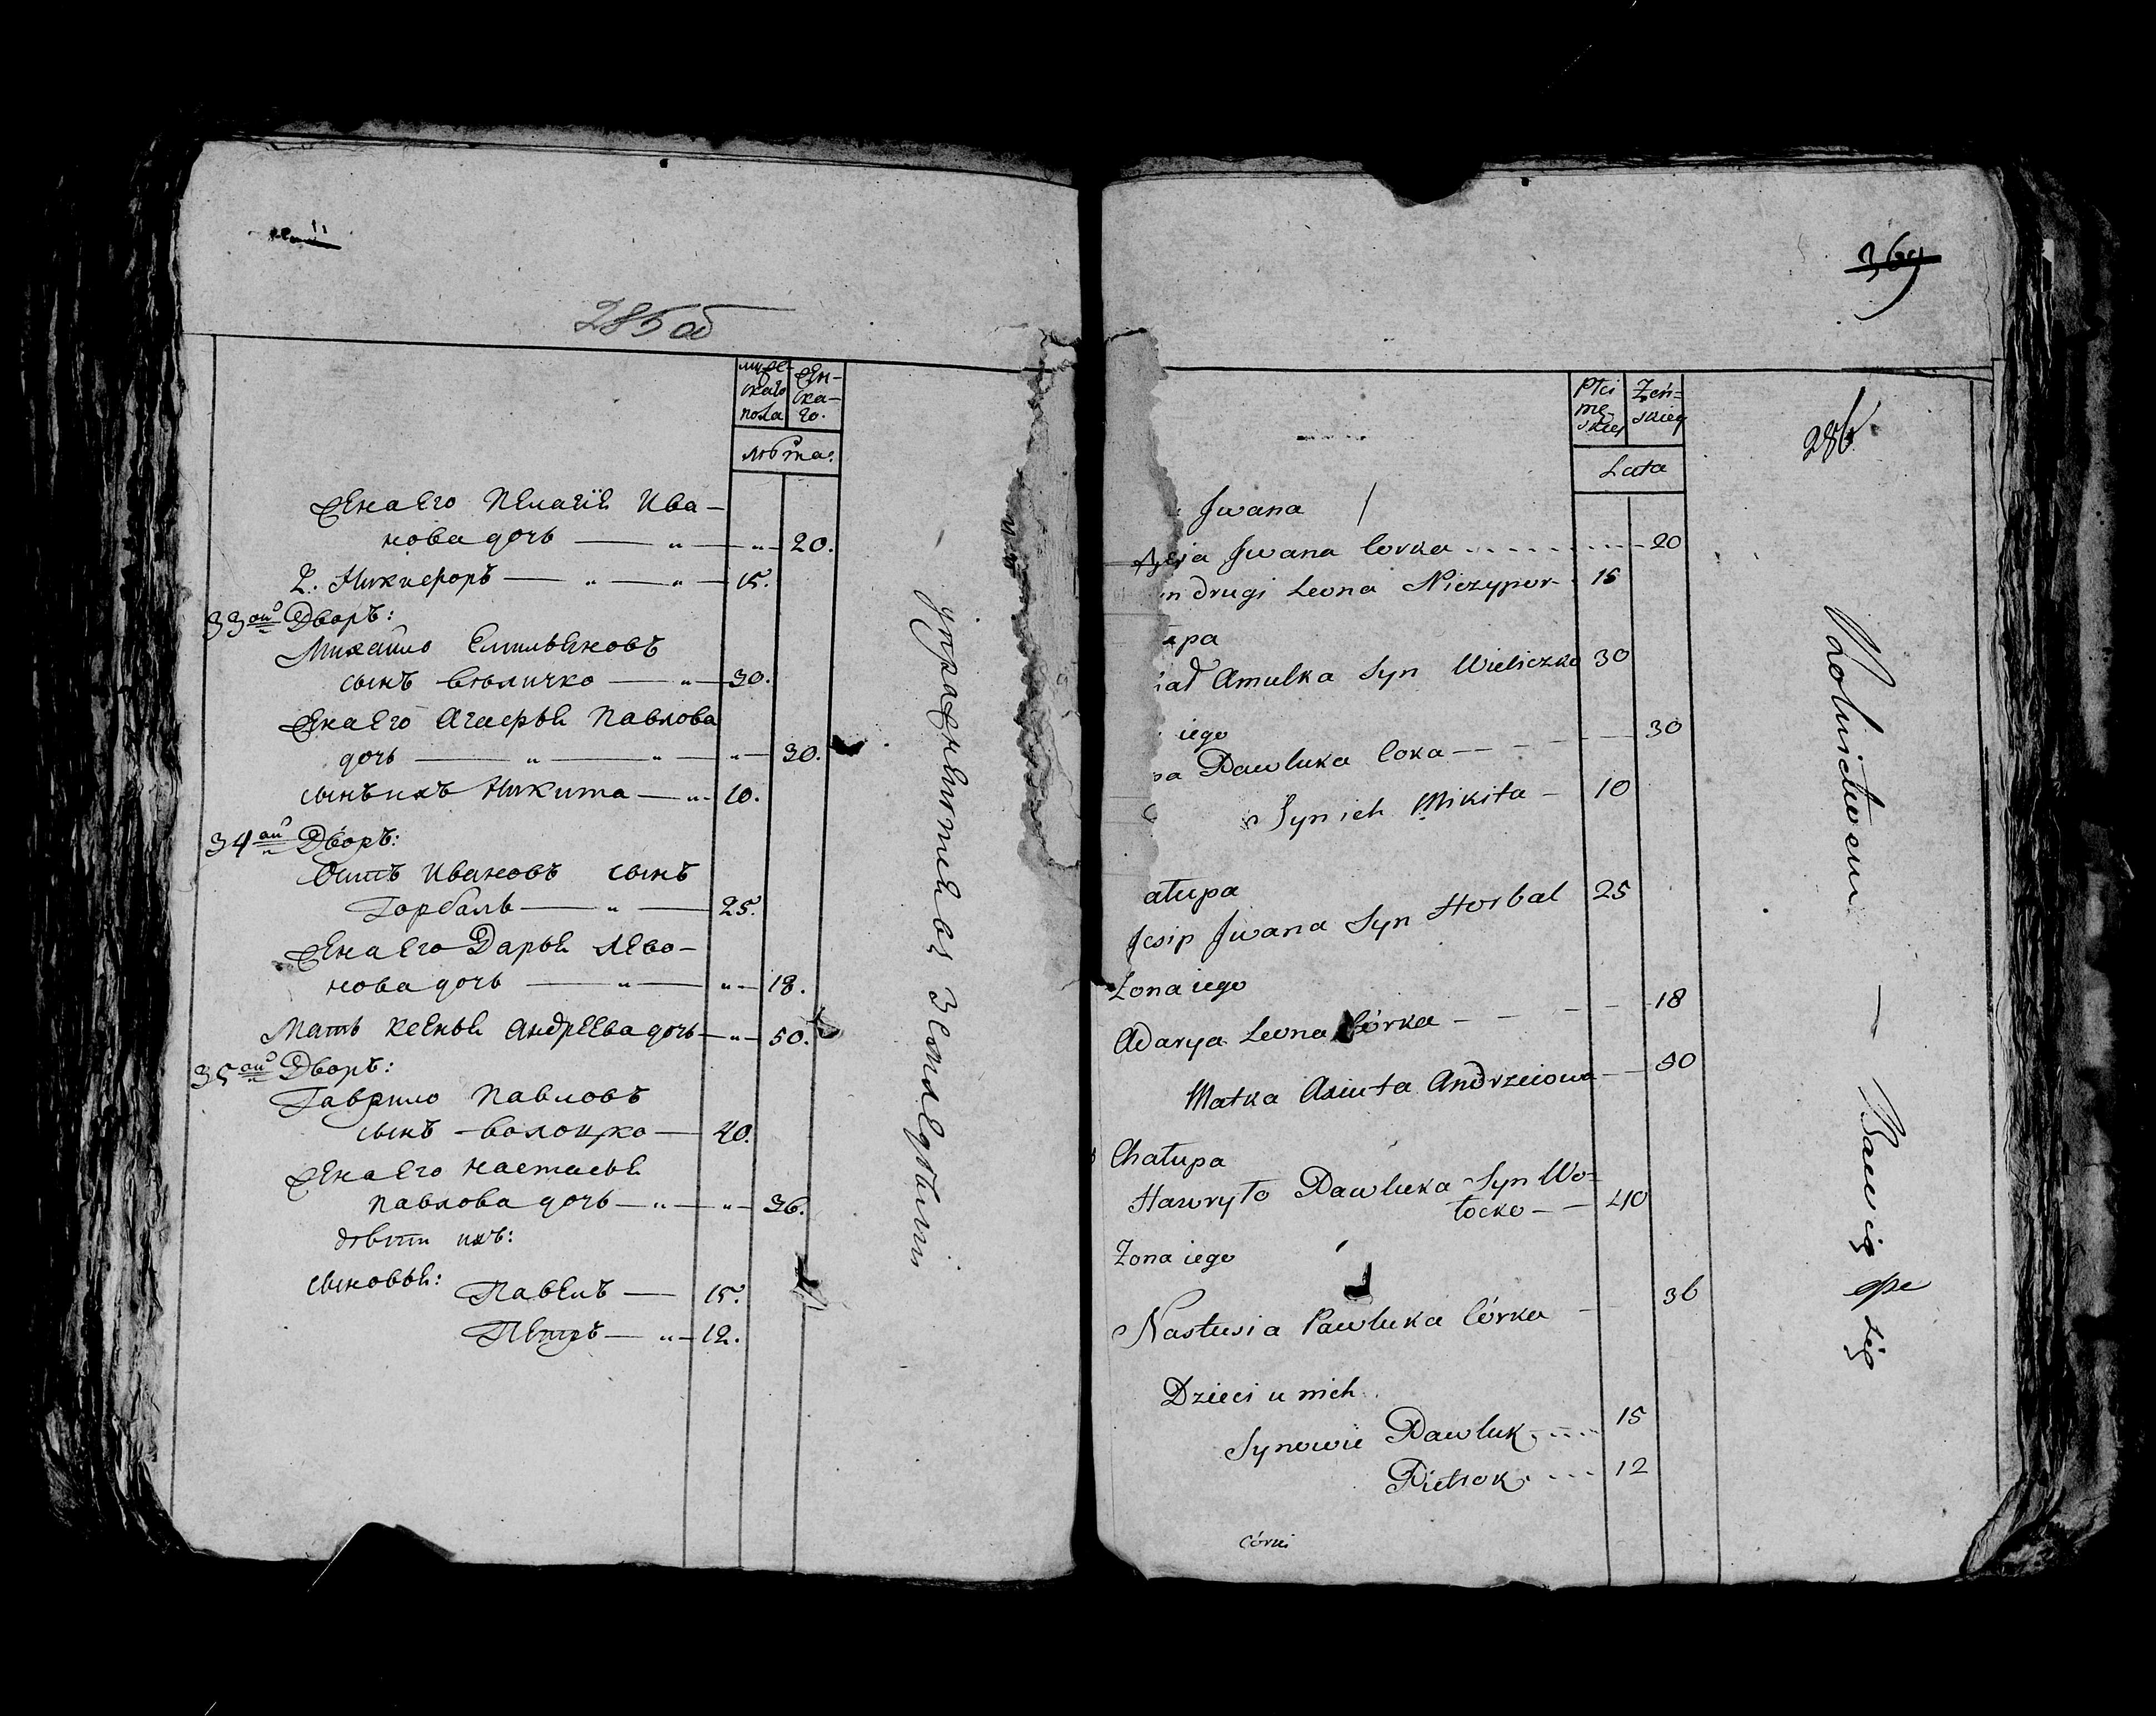 285 об
мужс-
каго
пола
жен-
ска-
го.
лѣта:
Жена его Пелагія Ива-
нова дочь — „ — „ — 20.
2. Никифоръ — „ — „ — 15.
33ай Дворъ:
Михайло Емильяновъ
сынъ Величко — „ — 30.
Жена его Агафья Павлова
дочь — „ — „ — „ — 30.
сынъ ихъ Никита — „ — 10.
34ай Дворъ:
Осипъ Ивановъ сынъ
Горбаль — „ — 25.
Жена его Дарья Лево-
нова дочь — „ — „ — 18.
Мать Ксенья Андреева дочь — „ — 50.
35ай Дворъ:
Гаврило Павловъ
сынъ Волоцко — 40.
Жена его Настасья
Павлова дочь — „ — „ — 36.
дѣти ихъ:
сыновья: Павелъ — 15.
Петръ — „ — 12.
упражняется въ Земледѣліи
369
286
Płci
mę-
skiej
Żeń=
skiey
Lata
Jwana
Jwana Corka 20
drugi Leona Niczypor 15
Amulka Syn Wieliczko 30
iego
Pawluka Coka — 30
Syn ich Mikita — 10
ałupa
Josip Jwana Syn Horbal 25
Żona iego
Adarya Leona Córka — 18
Matka Axiuta Andrzeiowa — 50
Chałupa
Hawryło Pawluka Syn Wo=
łocko — 40
Żona iego
Nastusia Pawluka Córka — 36
Dzieci u nich
Synowie Pawluk 15
Pietrok 12
Córki
Rolnictwem — Bawią się